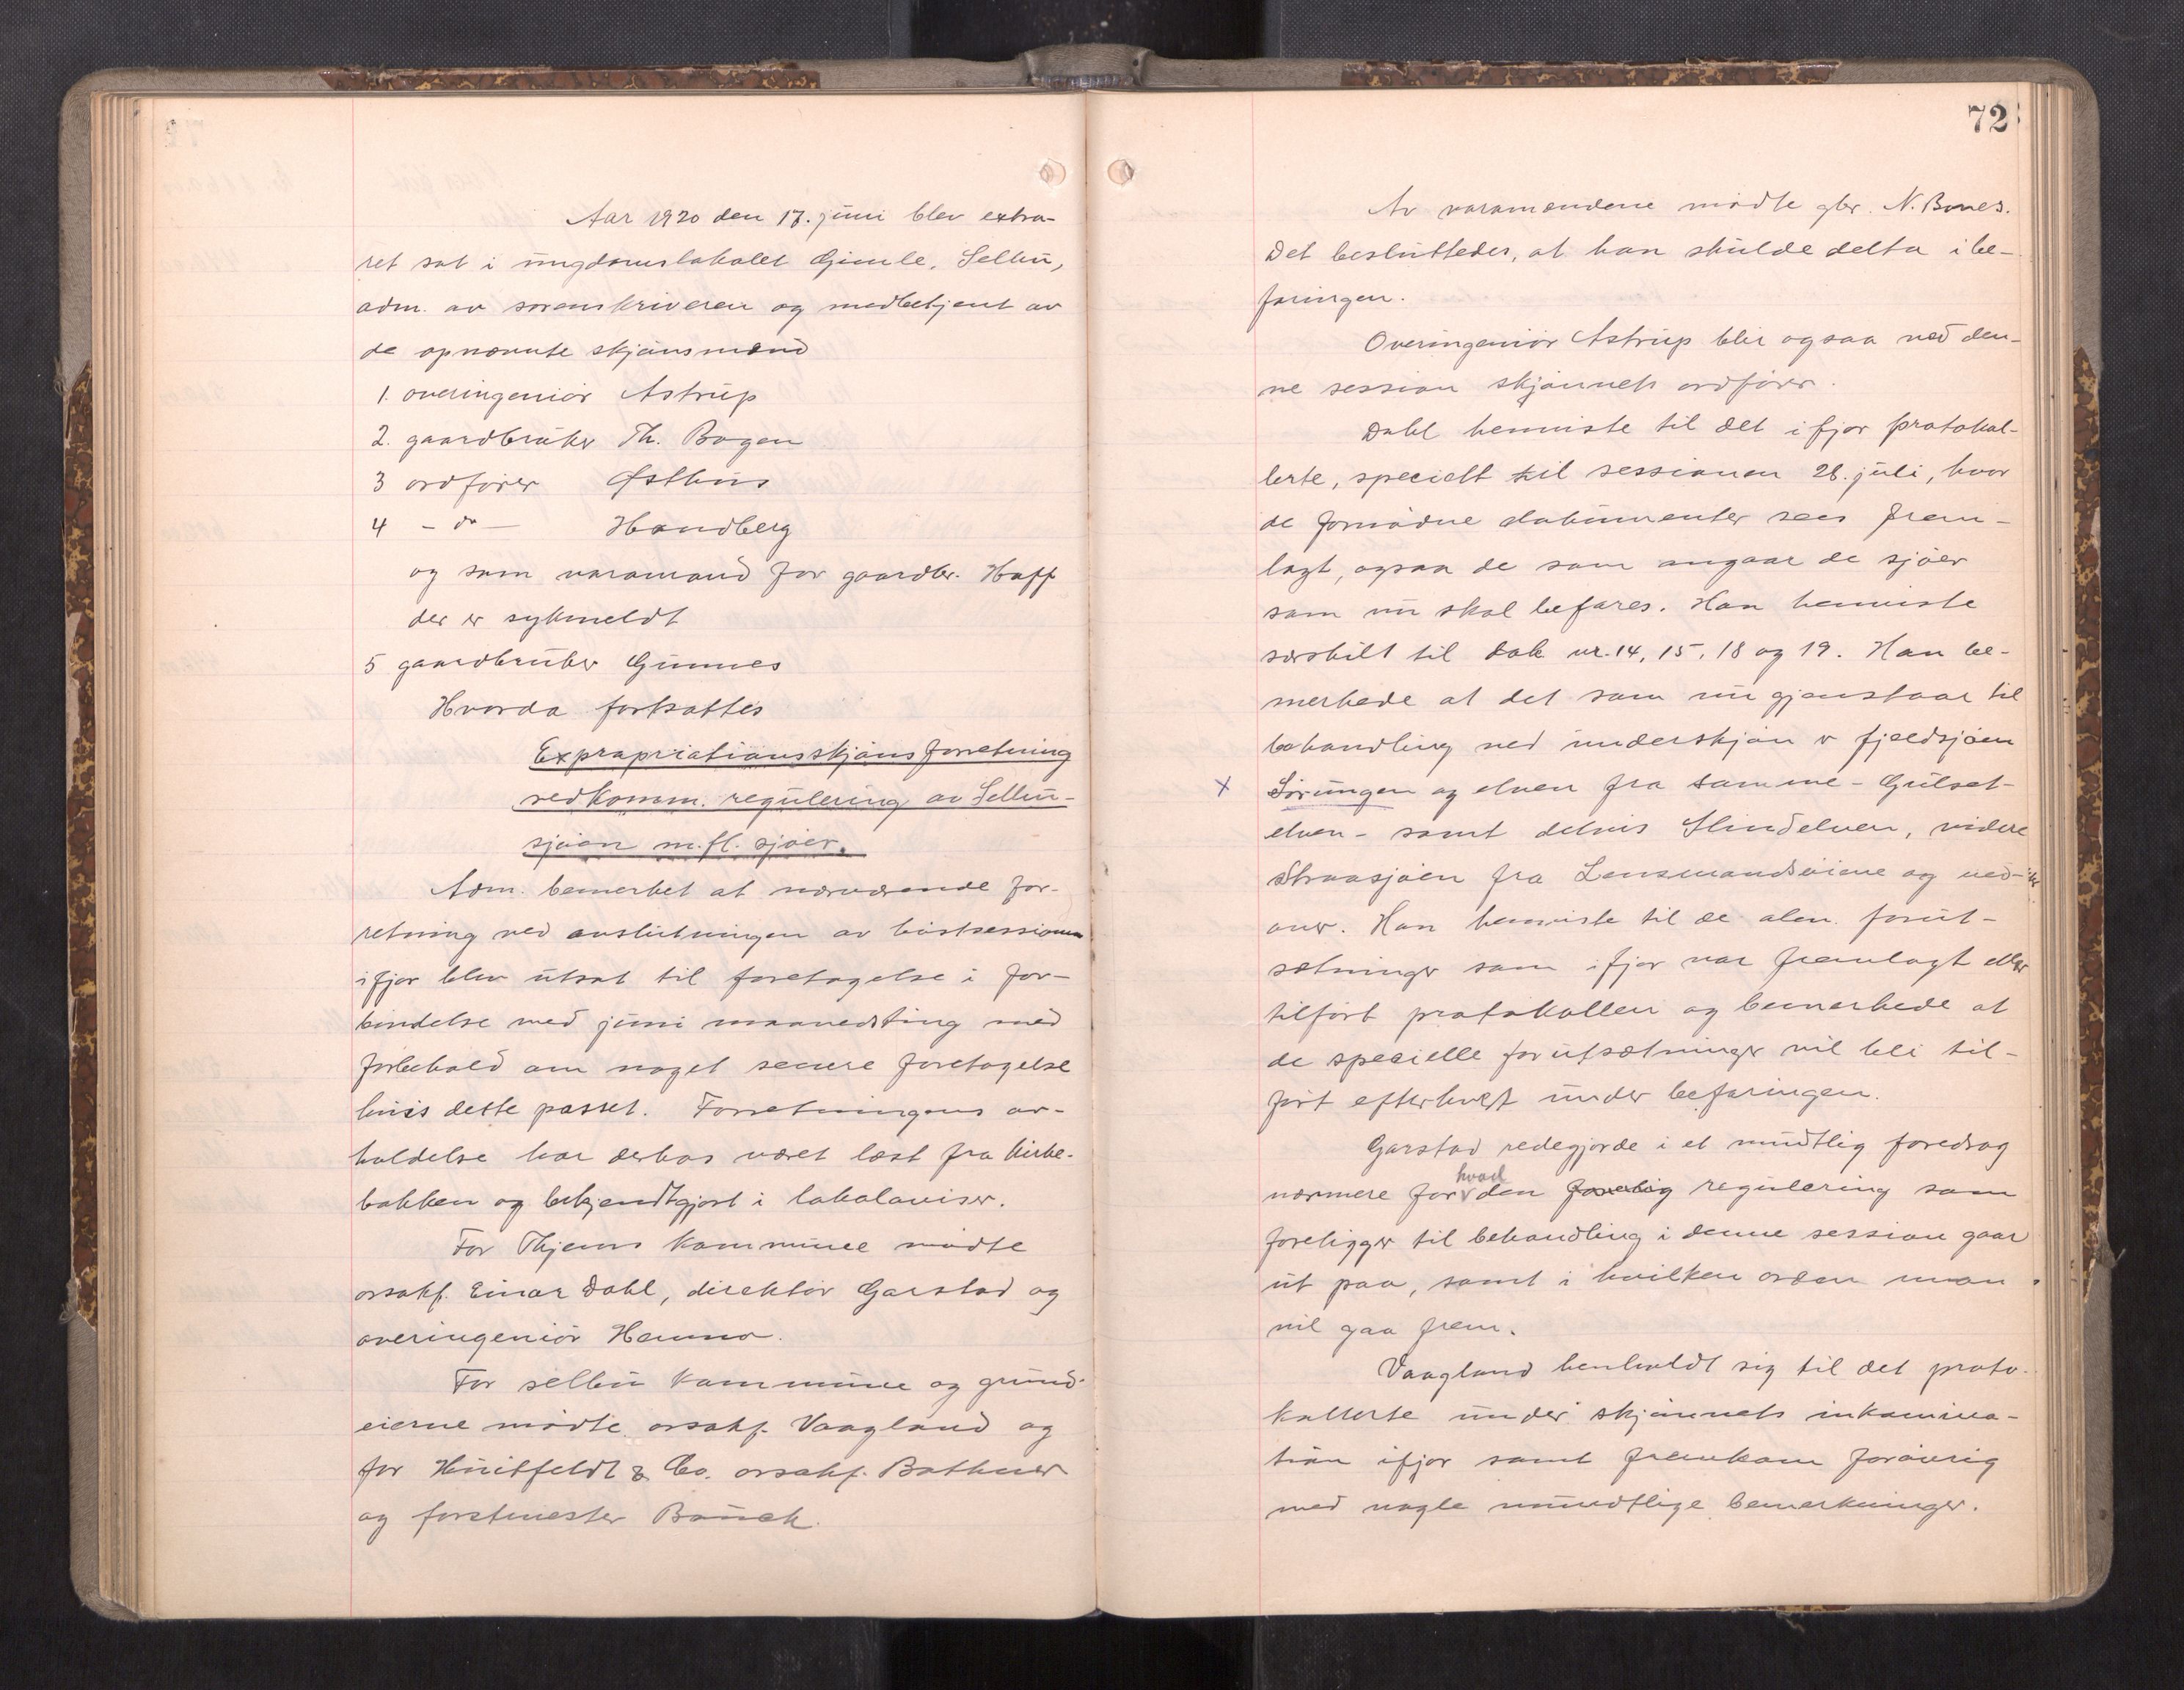 Aar 1920 den 17. juni blev extra-
ret sat i ungdomslokalet Gimle, Selbu,
adm. av sorenskriveren og medbetjent av
de opnævnte skjønsmænd
1. overingeniör Astrup
2. gaardbruker Th. Bogen
3 ordförer Østhus
4 - do - Handberg
og som varamand for gaardbr. Haff
der er sykmeldt
5 gaardbruker Gunnes
Hvorda fortsattes
Expropriationsskjönsforretning
vedkomm. regulering av Selbu-
sjöen m.fl. sjöer.
Adm. bemerket at nærværende for-
retning ved avslutningen av höstsessionen
ifjor blev utsat til foretagelse i for-
bindelse med juni maanedsting med
forbehold om noget senere foretagelse
hvis dette passet. Forretningens av-
holdelse har derhos været læst fra kirke-
bakken og bekjendtgjort i lokalaviser.
For Thjems kommune mödte
orsakf. Einar Dahl, direktör Garstad og
overingeniör Hanno.
For selbu kommune og grund-
eierne mödte orsakf. Vaagland og
for Huitfeldt & Co. orsakf. Bathner
og forstmester Bauck.
72
Av varamændene mödte gbr. N. Bones.
Det besluttedes, at han skulde delta i be-
faringen.
Overingeniör Astrup blir ogsaa ved den-
ne session skjönnets ordförer.
Dahl henviste til det ifjor protokol-
lerte, specielt til sessionen 28. juli, hvor
de fornödne dokumenter sees frem-
lagt, ogsaa de som angaar de sjöer
som nu skal befares. Han henviste
særskilt til dok nr. 14, 15, 18 og 19. Han be-
merkede at det som nu gjenstaar til
behandling ved underskjön er fjeldsjöen
x Sörungen og elven fra samme - Gulset-
elven - samt delvis Slindelven, videre
Straasjöen fra Lensmandsöiene og ned-
over. Han henviste til de alm. forut-
sætninger som ifjor var fremlagt eller
tilfört protokollen og bemerkede at
de specielle forutsætninger vil bli til-
fört efterhvert under befaringen.
Garstad redegjorde i et mundtlig foredrag
hvad
nærmere for den forelig regulering som
foreligger til behandling i denne session gaar
ut paa, samt i hvilken orden man
vil gaa frem.
Vaagland henholdt sig til det proto-
kollerte under skjönnets inkamina-
tion ifjor samt fremkom forövrig
med nogle mundtlige bemerkninger.